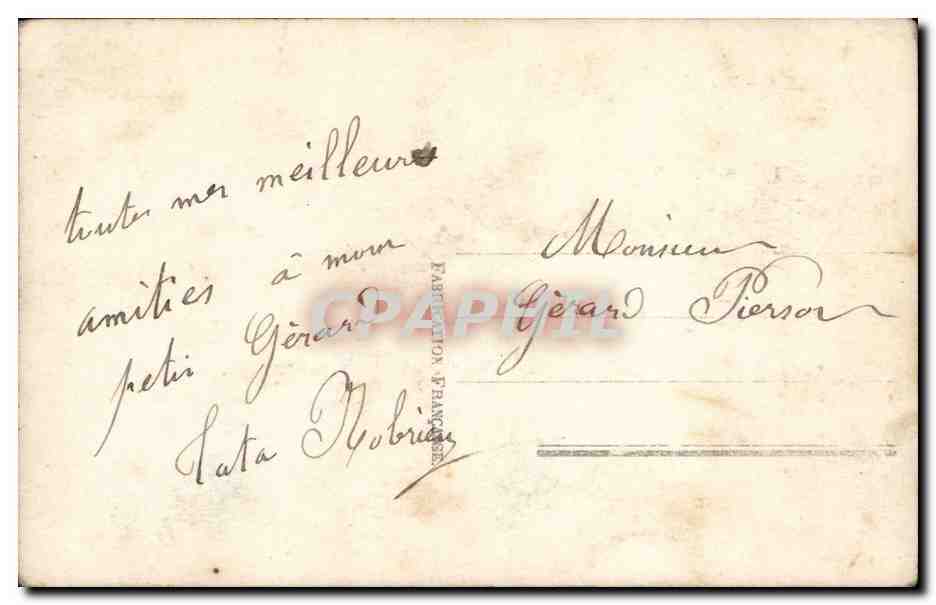 toutes mes meilleures
amitiés à mon
petit Gérard
Tata
FABRICATION FRANÇAISE.
Monsieur
Gérard Pierson
CPAPHIL